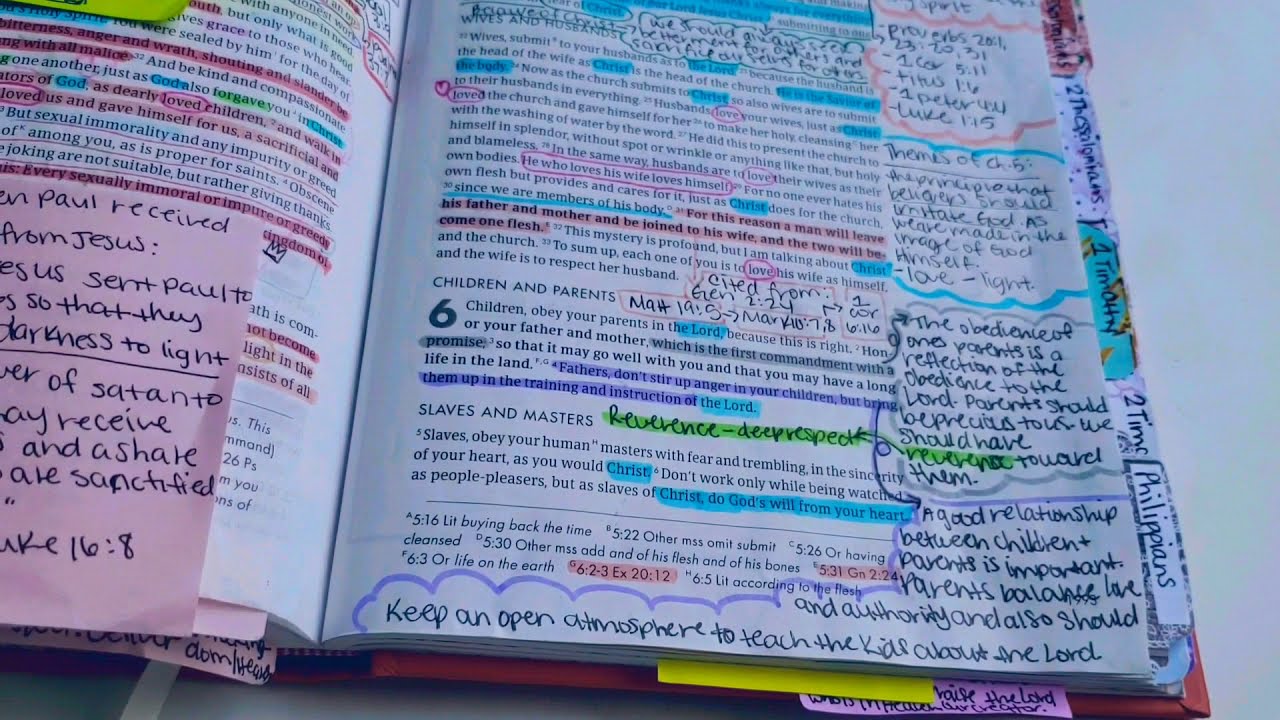 with anyone in need
mouth, but only what is good
gives grace to those who hear
were sealed by him for the day of
bitterness, anger and wrath, shouting and slander be
with all malice. 32 And be kind and compassionate
one another, just as God also forgave you in Christ
of God, as dearly loved children, 2 and walk in
loved us and gave himself for us, a sacrificial and
But sexual immorality and any impurity or greed
of among you, as is proper for saints. 4 Obscene
joking are not suitable, but rather giving thanks.
Every sexually immoral or impure or greedy
kingdom of
Paul received
from Jesus:
sent Paul to
so that they
darkness to light
of satan to
may receive
and a share
are sanctified
Luke 16:8
not become
light in the
consists of all
This
26 Ps
you
of
submitting to one
WIVES AND HUSBANDS
22 Wives, submit B to your husbands as to the Lord, 23 because the husband is
the head of the wife as Christ is the head of the church. He is the Savior of
the body. 24 Now as the church submits to Christ, so also wives are to submit
to their husbands in everything. 25 Husbands, love your wives, just as Christ
loved the church and gave himself for her 26 to make her holy, cleansing C her
with the washing of water by the word. 27 He did this to present the church to
himself in splendor, without spot or wrinkle or anything like that, but holy
and blameless. 28 In the same way, husbands are to love their wives as their
own bodies. He who loves his wife loves himself. 29 For no one ever hates his
own flesh but provides and cares for it, just as Christ does for the church,
30 since we are members of his body. D 31 For this reason a man will leave
his father and mother and be joined to his wife, and the two will be-
come one flesh. E 32 This mystery is profound, but I am talking about Christ
and the church. 33 To sum up, each one of you is to love his wife as himself,
and the wife is to respect her husband.
Cited from:
Gen 2:24
Matt 19:5 → Mark 10:7,8
→ 1 Cor 6:16
CHILDREN AND PARENTS
6 Children, obey your parents in the Lord, because this is right. 2 Hon-
or your father and mother, which is the first commandment with a
promise, 3 so that it may go well with you and that you may have a long
life in the land. F,G 4 Fathers, don't stir up anger in your children, but bring
them up in the training and instruction of the Lord.
SLAVES AND MASTERS Reverence - deep respect
5 Slaves, obey your human H masters with fear and trembling, in the sincerity
of your heart, as you would Christ. 6 Don't work only while being watched,
as people-pleasers, but as slaves of Christ, do God's will from your heart.
A 5:16 Lit buying back the time B 5:22 Other mss omit submit C 5:26 Or having
cleansed D 5:30 Other mss add and of his flesh and of his bones E 5:31 Gn 2:24
F 6:3 Or life on the earth G 6:2-3 Ex 20:12 H 6:5 Lit according to the flesh
Keep an open atmosphere to teach the kids about the Lord
spirit
- Proverbs 20:1,
23:20-31
- 1 Cor 5:11
- Titus 1:6
- 1 Peter 4:4
- Luke 1:15
Themes of ch. 5:
the principle that
believers should
imitate God as
we are made in the
image of God
Himself.
- love - light.
The obedience of
ones parents is a
reflection of the
obedience to the
Lord. Parents should
be precious to us. We
should have
reverence toward
them.
A good relationship
between children +
parents is important.
Parents balance love
and authority and also should
2 Thessalonians
1 Timothy
2 Tim
Philippians
praise the Lord
who is in Heaven our creator.